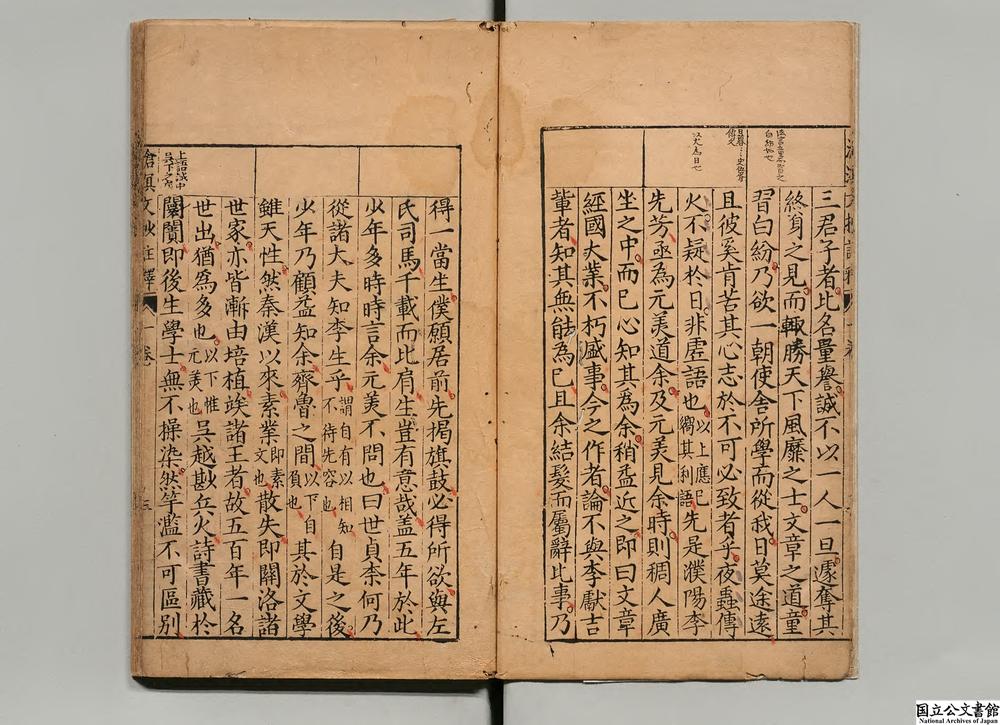 三君子者比名量譽誠不以一人一旦遽奪其
終身之見而輒勝天下風靡之士文章之道童
習白紛乃欲一朝使舍所學而從我日莫途遠
且彼奚肯苦其心志於不可必致者乎夜蟲傳
火不疑於日非虛語也以上應巳嚮其利語先是濮陽李
先芳亟為元美道余及元美見余時則稠人廣
坐之中而巳心知其為余稍益近之即曰文章
經國大業不朽盛事今之作者論不與李獻吉
輩者知其無能為巳且余結髮而屬辭比事乃
得一當生僕願居前先揭旗鼓必得所欲與左
氏司馬千載而比肩生豈有意哉蓋五年於此
少年多時時言余元美不問也曰世貞柰何乃
從諸大夫知李生乎謂自有以相知不待先容也自是之後
少年乃顧益知余齊魯之間以下自負也其於文學
雖天性然秦漢以來素業即素文也散失即關洛諸
世家亦皆漸由培植竢諸王者故五百年一名
世出猶為多也以下惟元美也吳越尠兵火詩書藏於
闤闠即後生學士無不操染然竽濫不可區別
滄溟文抄註釋
一卷
三
国立公文書館
National Archives of Japan